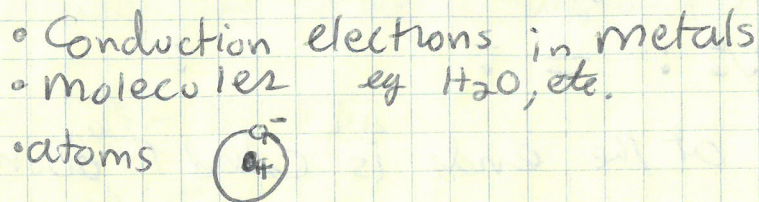 • Conduction electrons in metals
• molecules eg H₂O, etc.
• atoms